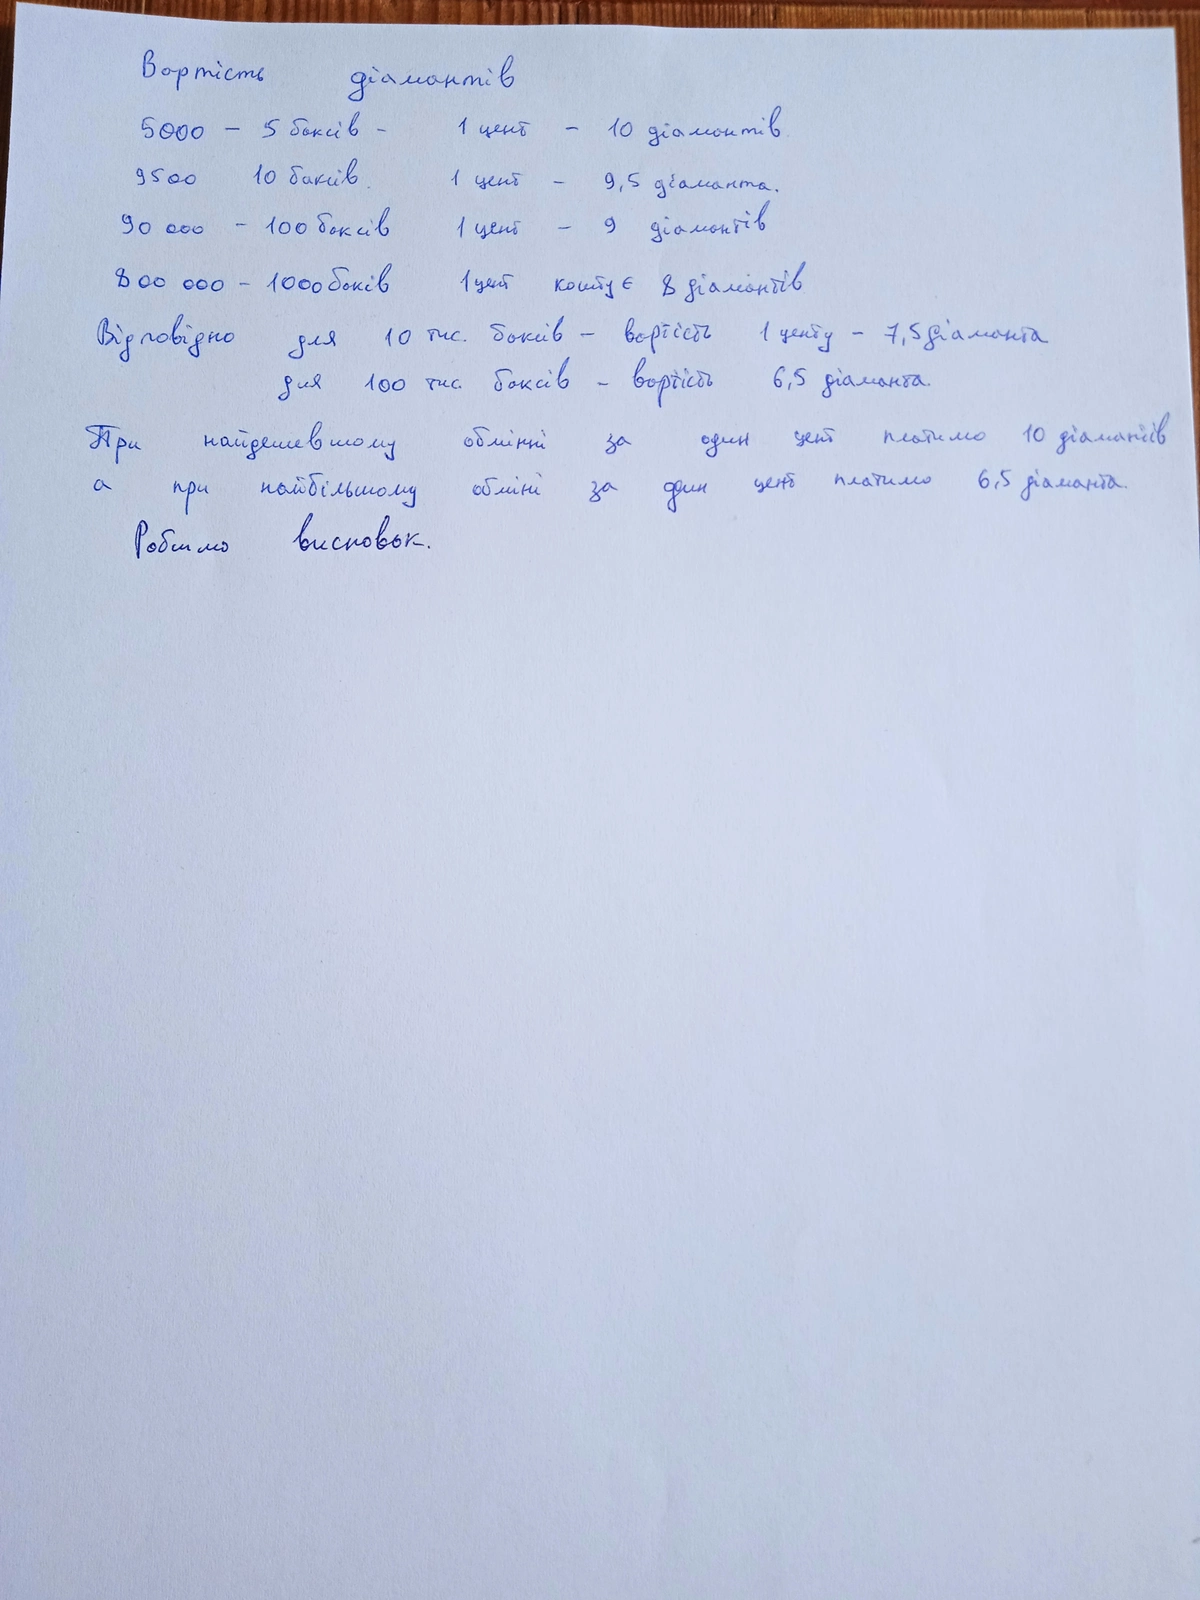 Вартість діамантів
5000 - 5 баксів - 1 цент - 10 діамантів.
9500 10 баксів. 1 цент - 9,5 діаманта.
90 000 - 100 баксів 1 цент - 9 діамантів
800 000 - 1000 баксів 1 цент коштує 8 діамантів
Відповідно для 10 тис. баксів - вартість 1 центу - 7,5 діаманта
для 100 тис. баксів - вартість 6,5 діаманта.
При найдешевшому обмінні за один цент платимо 10 діамантів
а при найбільшому обміні за один цент платимо 6,5 діаманта.
Робимо висновок.